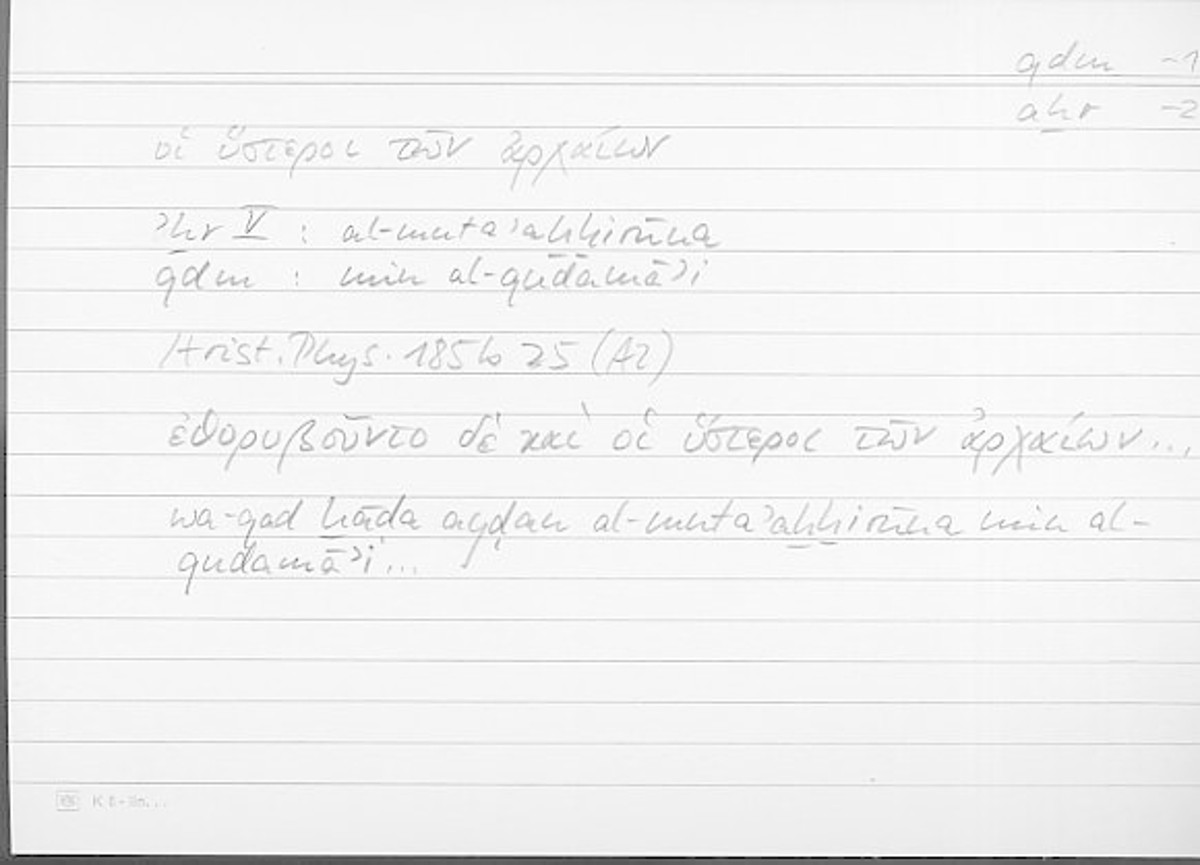 qdm -1
aḫr -2
οἱ ὕστεροι τῶν ἀρχαίων
ʾḫr V : al-mutaʾaḫḫirūna
qdm : min al-qudamāʾi
Arist. Phys. 185b25 (A2)
ἐθορυβοῦντο δὲ καὶ οἱ ὕστεροι τῶν ἀρχαίων...,
wa-qad ḫāḍa ayḍan al-mutaʾaḫḫirūna min al-
qudamāʾi...